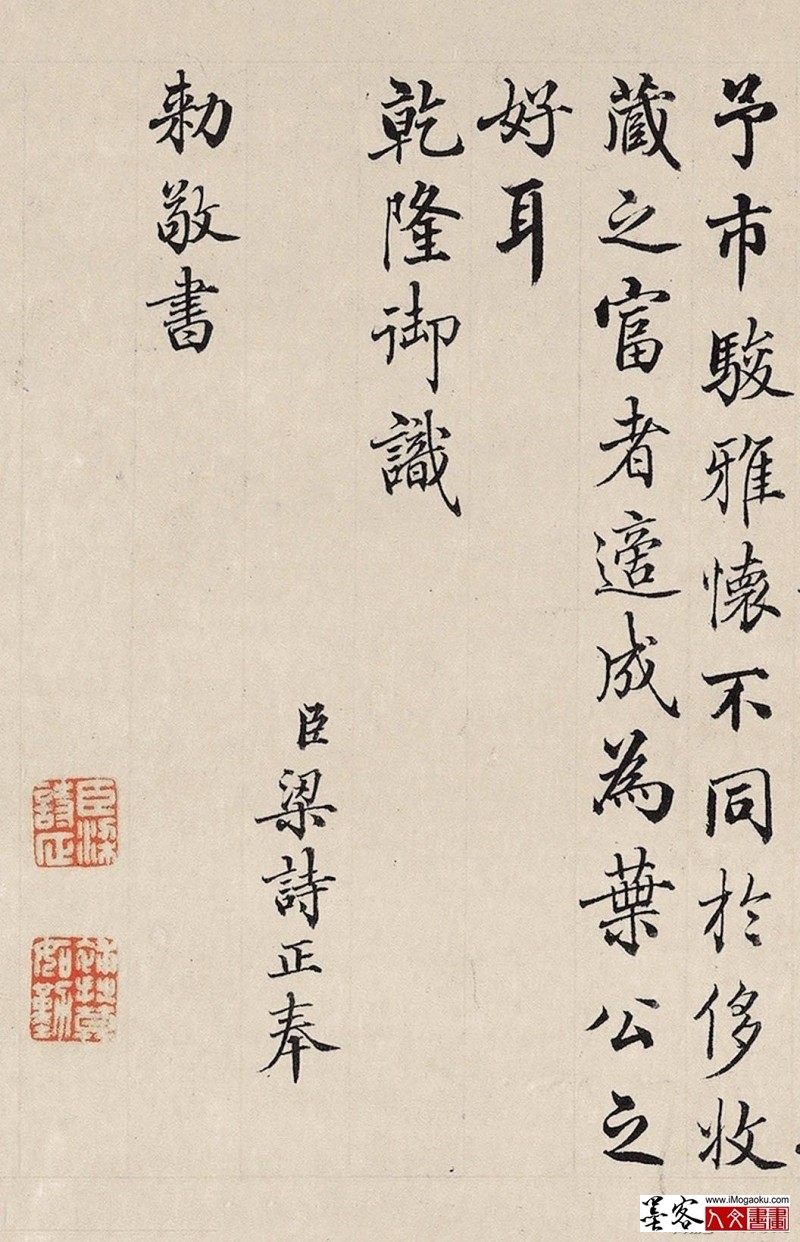 予市駿雅懐不同於侈收
藏之富者適成為葉公之
好耳
乾隆御識
臣梁詩正奉
勅敬書
臣梁詩正
www.iMogaoku.com
墨客人文書畫